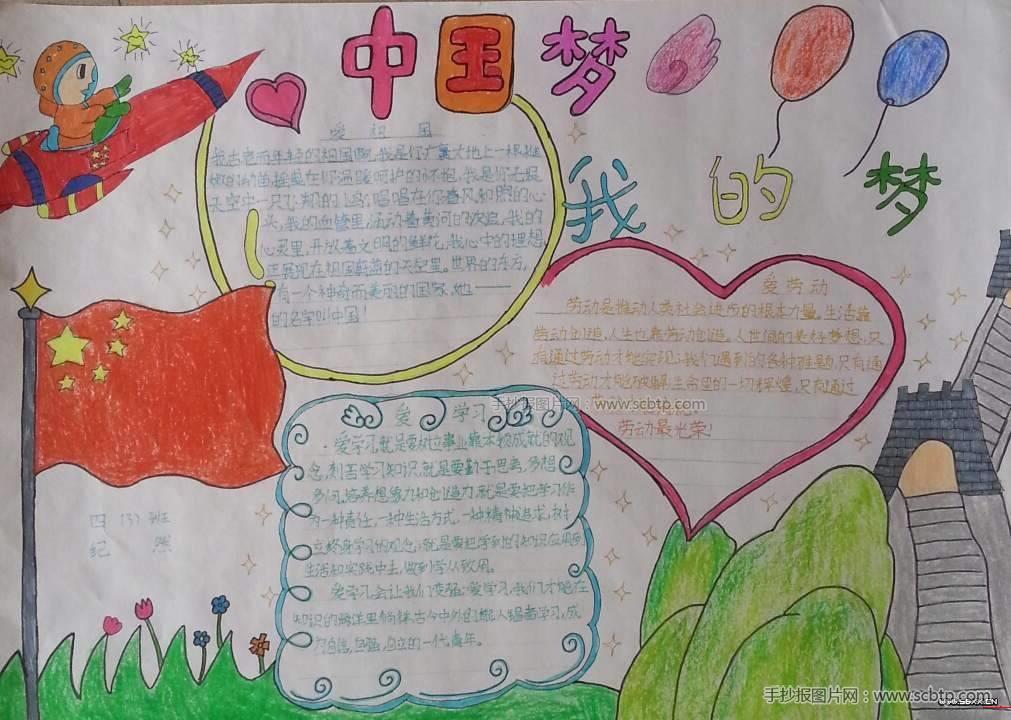 中国梦
我的梦
爱祖国
我古老而年轻的祖国啊,我是你广袤大地上一棵稚
嫩的幼苗,摇曳在你温暖呵护的怀抱,我是你无垠
天空中一只
头,我的血管里,流动着黄河的波浪,我的
心灵里,开放着文明的鲜花,我心中的理想,
正展现在祖国蔚蓝的天空里。世界的东方,
有一个神奇而美丽的国家,她——
的名字叫中国!
爱劳动
劳动是推动人类社会进步的根本力量,生活靠
劳动创造,人生也靠劳动创造。人世间的美好梦想,只
有通过劳动才能实现;我们遇到的各种难题,只有通
过劳动才能破解;生命里的一切辉煌,只有通过
劳动最光荣!
爱学习
爱学习,就是要树立事业靠本领成就的观
念,刻苦学习知识,就是要勤于思考,多想
多问,培养想象力和创造力,就是要把学习作
为一种责任,一种生活方式,一种精神追求,树
立终身学习的观念;就是要把学到的知识应用到
生活和实践中去,做到学以致用。
爱学习会让我们变强;爱学习,我们才能在
知识的海洋里徜徉,古今中外的能人
自信,自强,自立的一代青年。
四(3)班
纪然
手抄报图片网:www.scbtp.com
手抄报图片网:www.scbtp.com